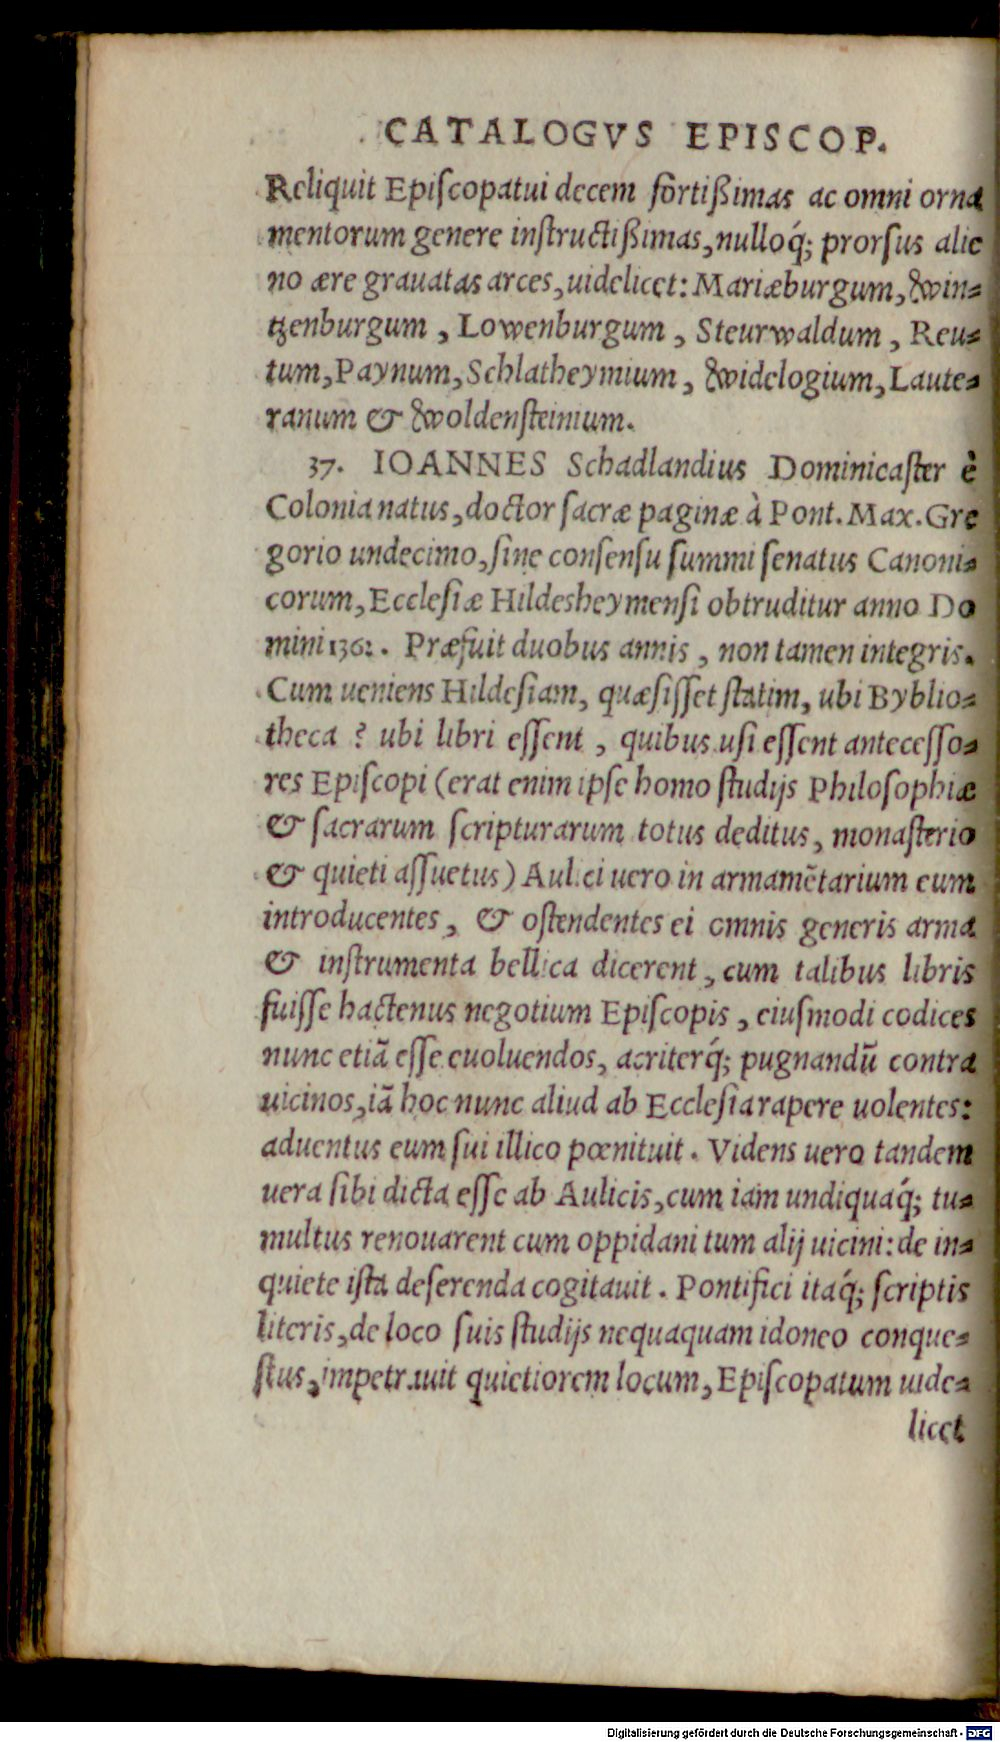 CATALOGVS EPISCOP.
Reliquit Episcopatui decem fortißimas ac omni orna
mentorum genere instructißimas, nulloq́; prorsus alie
no ære grauatas arces, uidelicet: Mariæburgum, Win-
tzenburgum, Lowenburgum, Steurwaldum, Reu-
tum, Paynum, Schlatheymium, Widelogium, Laute-
ranum & Woldensteinium.
37. IOANNES Schadlandius Dominicaster è
Colonia natus, doctor sacræ paginæ à Pont. Max. Gre
gorio undecimo, sine consensu summi senatus Canoni-
corum, Ecclesiæ Hildesheymensi obtruditur anno Do
mini 1362. Præfuit duobus annis, non tamen integris.
Cum ueniens Hildesiam, quæsisset statim, ubi Byblio-
theca? ubi libri essent, quibus usi essent antecesso-
res Episcopi (erat enim ipse homo studijs Philosophiæ
& sacrarum scripturarum totus deditus, monasterio
& quieti assuetus) Aulici uero in armamẽtarium eum
introducentes, & ostendentes ei omnis generis arma
& instrumenta bellica dicerent, cum talibus libris
fuisse hactenus negotium Episcopis, eiusmodi codices
nunc etiã esse euoluendos, acriterq́; pugnandũ contra
uicinos, iã hoc nunc aliud ab Ecclesia rapere uolentes:
aduentus eum sui illico pœnituit. Videns uero tandem
uera sibi dicta esse ab Aulicis, cum iam undiquaq́; tu-
multus renouarent cum oppidani tum alij uicini: de in-
quiete ista deserenda cogitauit. Pontifici itaq́; scriptis
literis, de loco suis studijs nequaquam idoneo conque-
stus, impetrauit quietiorem locum, Episcopatum uide-
licet
Digitalisierung gefördert durch die Deutsche Forschungsgemeinschaft - DFG